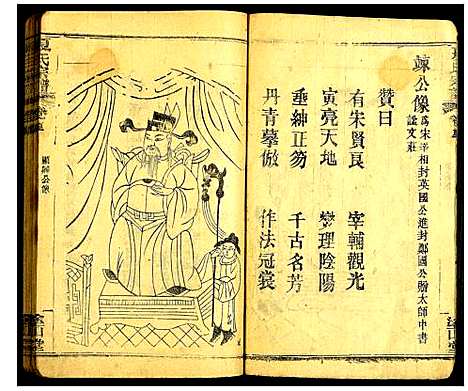 竦公像 為宋宰相封英國公進封鄭國公贈太師中書
諡文莊
贊曰
有宋賢良 宰輔觀光
寅亮天地 燮理陰陽
垂紳正笏 千古名芳
丹青摹倣 作法冠裳
塗山堂
夏氏宗譜